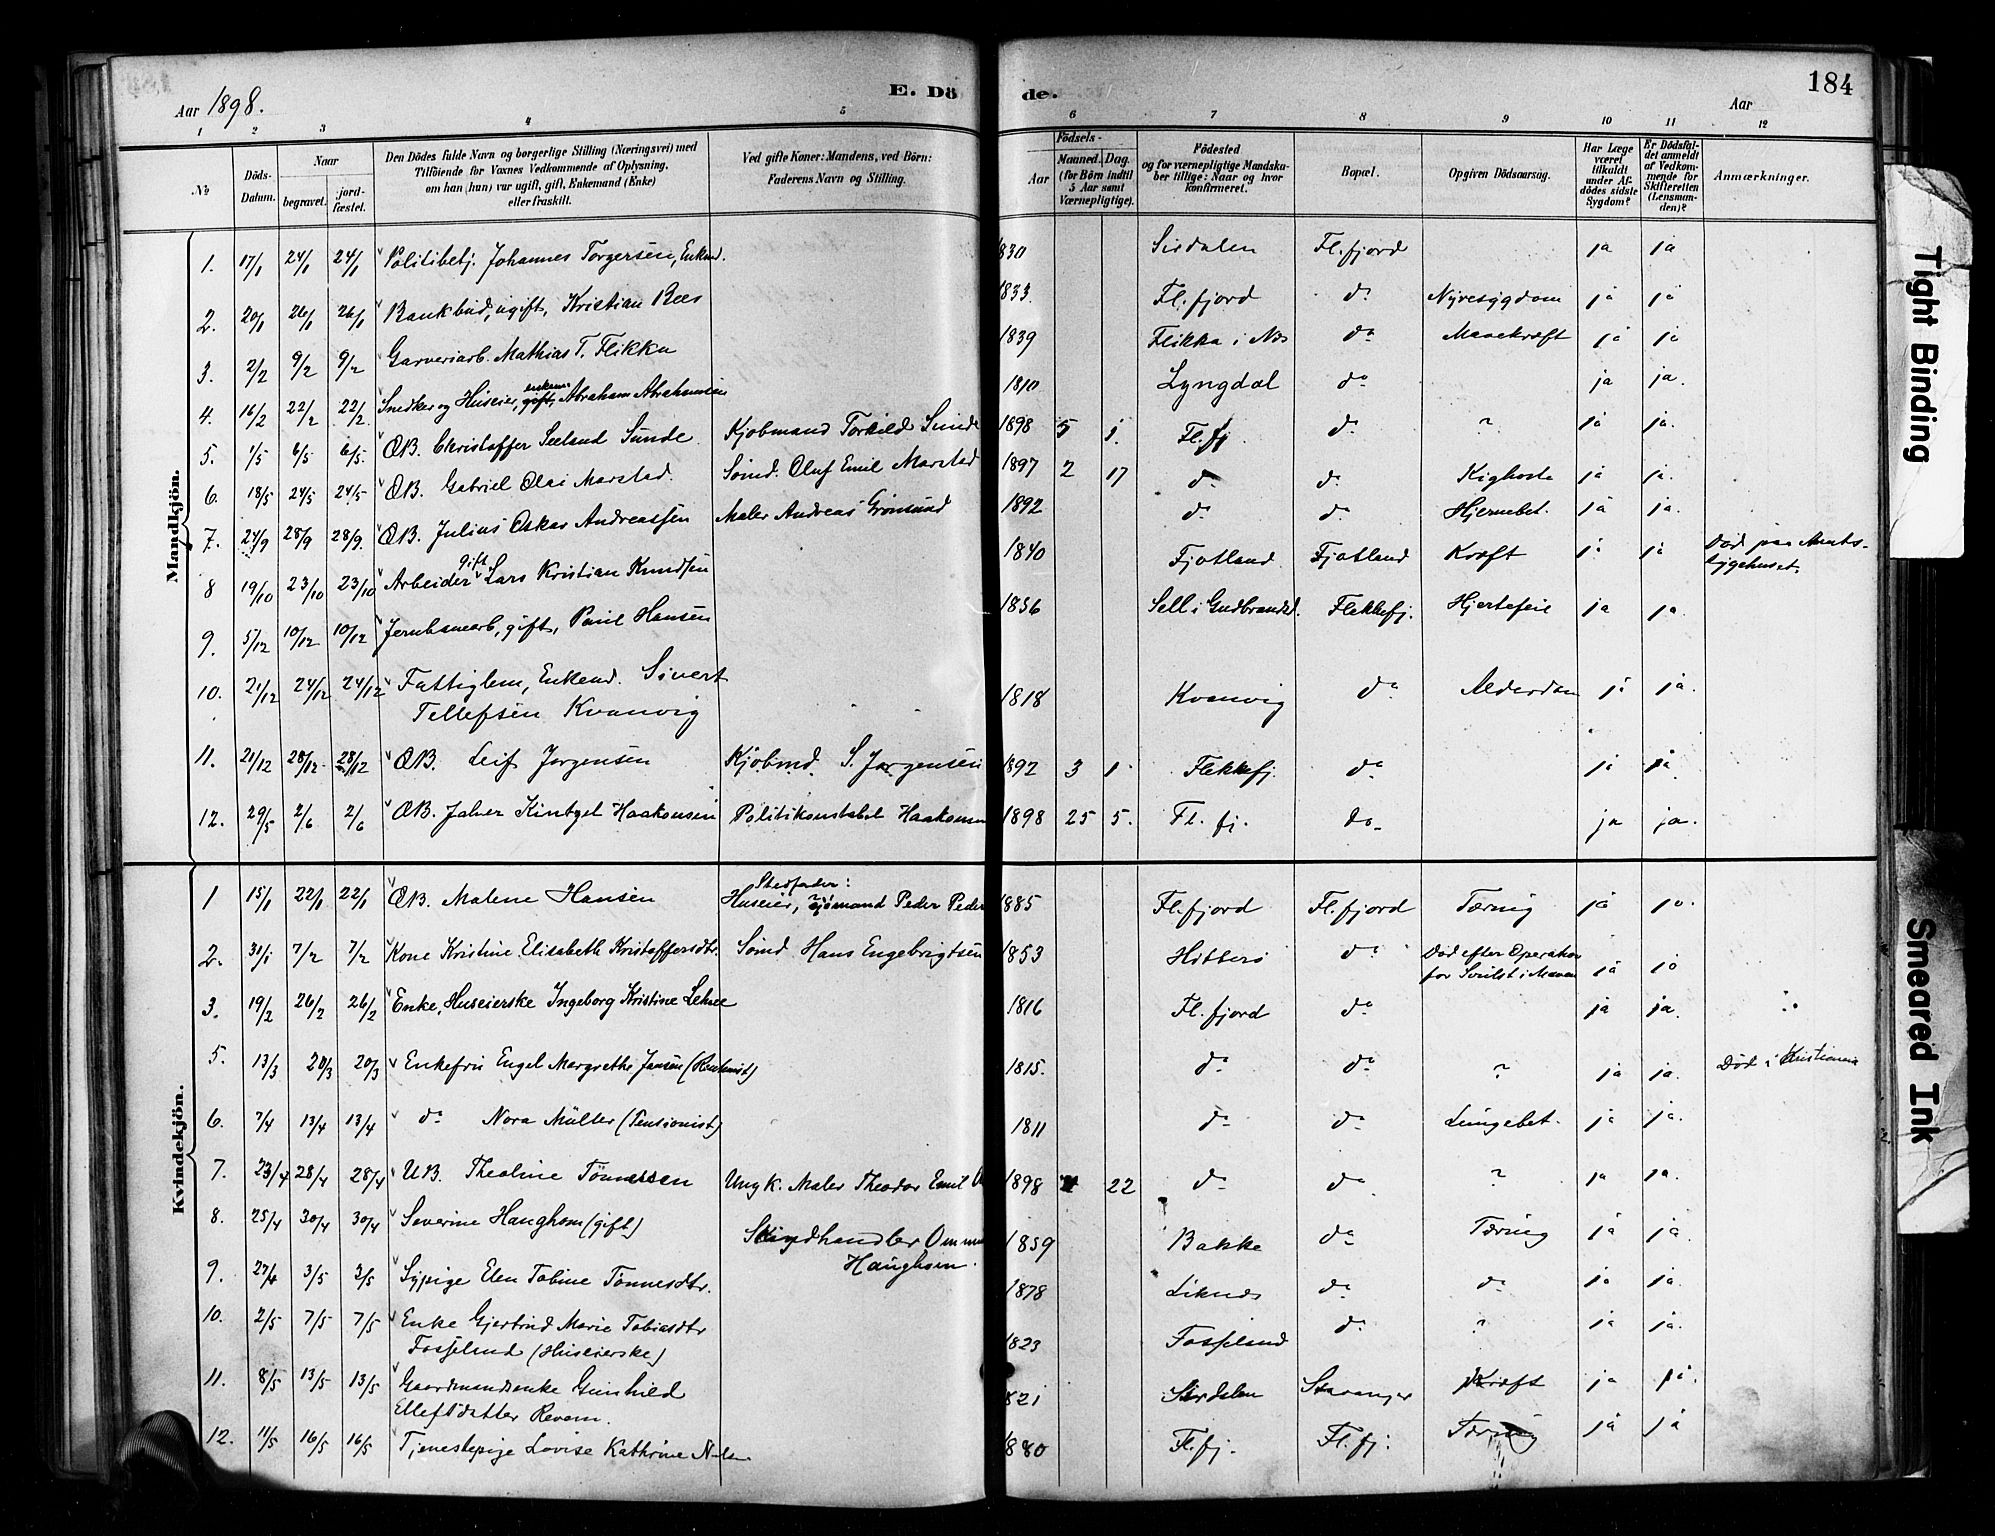 184
Aar 1898.
E. Dö de.
Aar
1 2 3 4 5 6 7 8 9 10 11 12
No
Döds-Datum.
Naar
begravet.
jord-fæstet.
Den Dödes fulde Navn og borgerlige Stilling (Næringsvei) med
Tilföiende for Voxnes Vedkommende af Oplysning,
om han (hun) var ugift, gift, Enkemand (Enke)
eller fraskilt.
Ved gifte Koner: Mandens, ved Börn:
Faderens Navn og Stilling.
Födsels-
Aar
Maaned. Dag.
(for Börn indtil
5 Aar samt
Værnepligtige).
Födested
og for værnepligtige Mandska-
ber tillige: Naar og hvor
konfirmeret.
Bopæl.
Opgiven Dödsaarsag.
Har Læge
været
tilkaldt
under Af-
dödes sidste
Sygdom?
Er Dödsfal-
det anmeldt
af Vedkom-
mende for
Skifteretten
(Lensman-
den)?
Anmærkninger.
Mandkjön.
1. 17/1 24/1 24/1 Politibetj. Johannes Torgersen, Enkmd. 1830 Sirdalen Fl.fjord ja ja
2. 20/1 26/1 26/1 Bankbud, ugift, Kristian Bees 1833. Fl.fjord do Nyresygdom ja ja
3. 2/2 9/2 9/2 Garveriarb. Mathias T. Flikka 1839 Flikka i Nes do Mavekræft ja ja
4. 16/2 22/2 22/2 Snedker og Huseier, enkem. gift, Abraham Abrahamsen 1810 Lyngdal do ja ja.
5. 1/5 6/5 6/5. ÆB. Christoffer Seeland Sunde Kjøbmand Torkild Sunde 1898 5 1. Fl.fj. do ? ja ja.
6. 18/5 24/5 24/5 ÆB. Gabriel Olai Marstad. Sømd. Oluf Emil Marstad 1897 2 17 do do Kighoste ja ja.
7. 24/9 28/9 28/9. ÆB. Julius Oskar Andreassen Maler Andreas Grønsund 1892 do do Hjernebet. ja ja.
8 19/10 23/10 23/10 Arbeider gift Lars Kristian Knudsen 1840 Fjotland Fjotland Kræft ja ja Død paa Amts-
sygehuset.
9. 5/12 10/12 10/12 Jernbanearb, gift, Paul Hansen 1856 Sell i Gudbrandsd. Flekkefj. Hjertefeil ja ja.
10. 21/12 24/12 24/12 Fattiglem, Enkemd. Sivert
Tellefsen Kvanvig 1818 Kvanvig do Alderdom ja ja.
11. 21/12 28/12 28/12 ÆB. Leif Jørgensen Kjøbmd. S. Jørgensen 1892 3 1 Flekkefj. do ja ja
12. 29/5 2/6 2/6 ÆB. Haakonsen Politikonstabel Haakonsen 1898 25 5. Fl. fj. do. ja ja.
Kvindekjön.
1 15/1 22/1 22/1 ÆB. Malene Hansen Stedfader:
Huseier, sjømand Peder 1885 Fl.fjord Fl.fjord Tæring ja ja.
2. 31/1 7/2 7/2 Kone Kristine Elisabeth Kristoffersdtr. Sømd Hans Engebrigtsen 1853 Hitterø do Død efter Operation
for Svulst i Maven ja ja
3. 19/2 26/2 26/2 Enke, Huseierske Ingeborg Kristine Lehne 1816 Fl.fjord do ja ja.
5. 13/3 20/3 20/3 Enkefru Engel Margrethe Jansen 1815. do do ? ja ja. Død i Kristiania
6. 7/4 13/4 13/4 do Nora Müller (Pensionist) 1811 do do Lungebet. ja ja.
7. 23/4 28/4 28/4 UB. Theoline Tønnessen Ungk. Maler Theodor Emil 1898 22 do do ? ja ja.
8. 25/4 30/4 30/4 Severine Haughom (gift) Skindhandler Ommund
Haughom. 1859 Bakke do Tæring ja ja.
9. 27/4 3/5 3/5 Sypige Elen Tobine Tønnesdtr. 1878 Liknes do do ja ja.
10. 2/5 7/5 7/5 Enke Gjertrud Marie Tobiasdtr
Fosseland (Huseierske) 1823 Fosseland do ? ja ja.
11. 8/5 13/5 13/5 Gaardmandsenke Gunhild
Ellefsdatter Revem. 1821 Sirdalen Stavanger Kræft ja ja.
12. 11/5 16/5 16/5 Tjenestepige Lovise Kathrine 1880 Fl.fj. Fl.fj. Tæring ja ja
Tight Binding
Smeared Ink